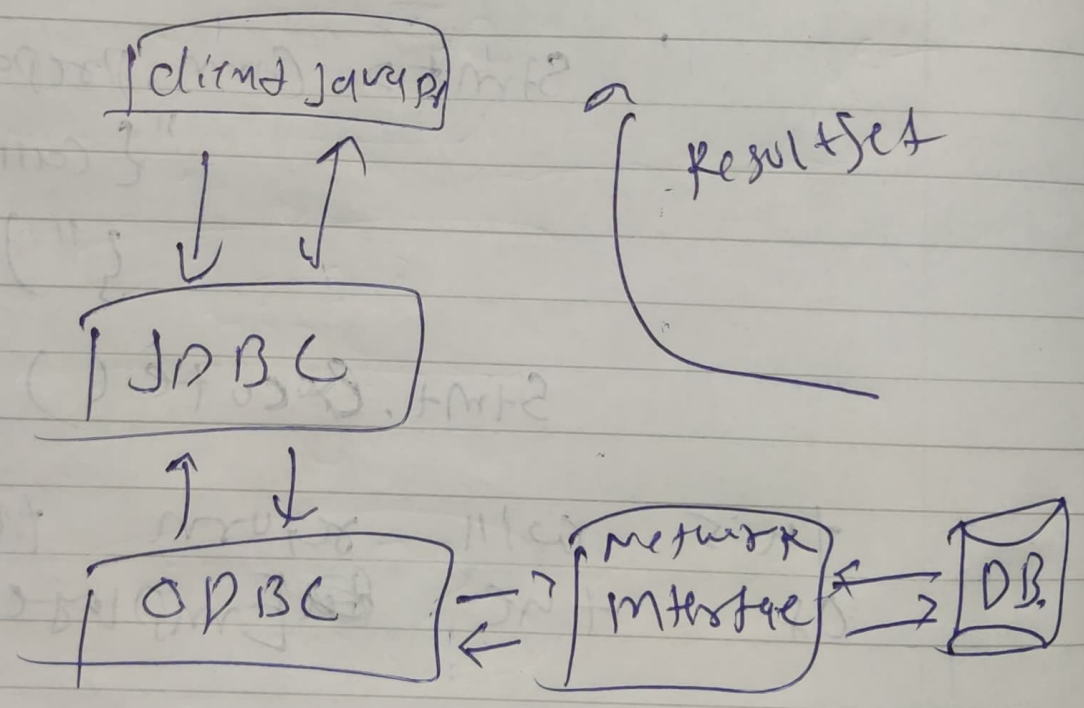 client java Pr
Resultset
JDBC
ODBC
Network
Interface
DB.